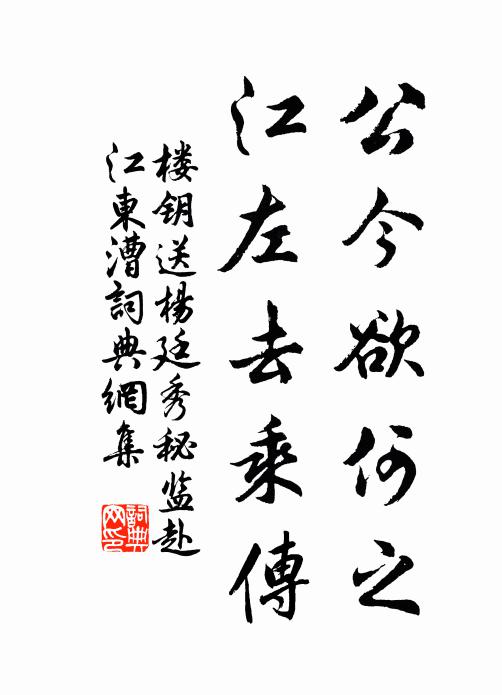 公今欲何之
江左去乘傳
楼钥送楊廷秀秘监赴
江東漕詞典網集
詞典网印